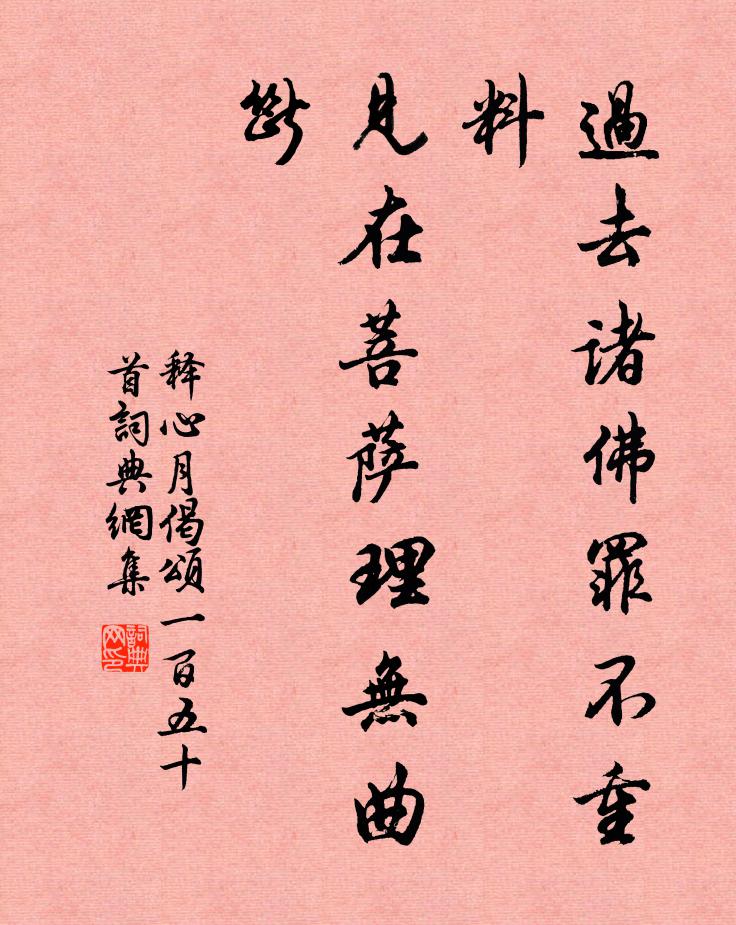 過去諸佛罪不重
料
見在菩萨理無曲
斷
释心月偈頌一百五十
首詞典網集
詞典網印